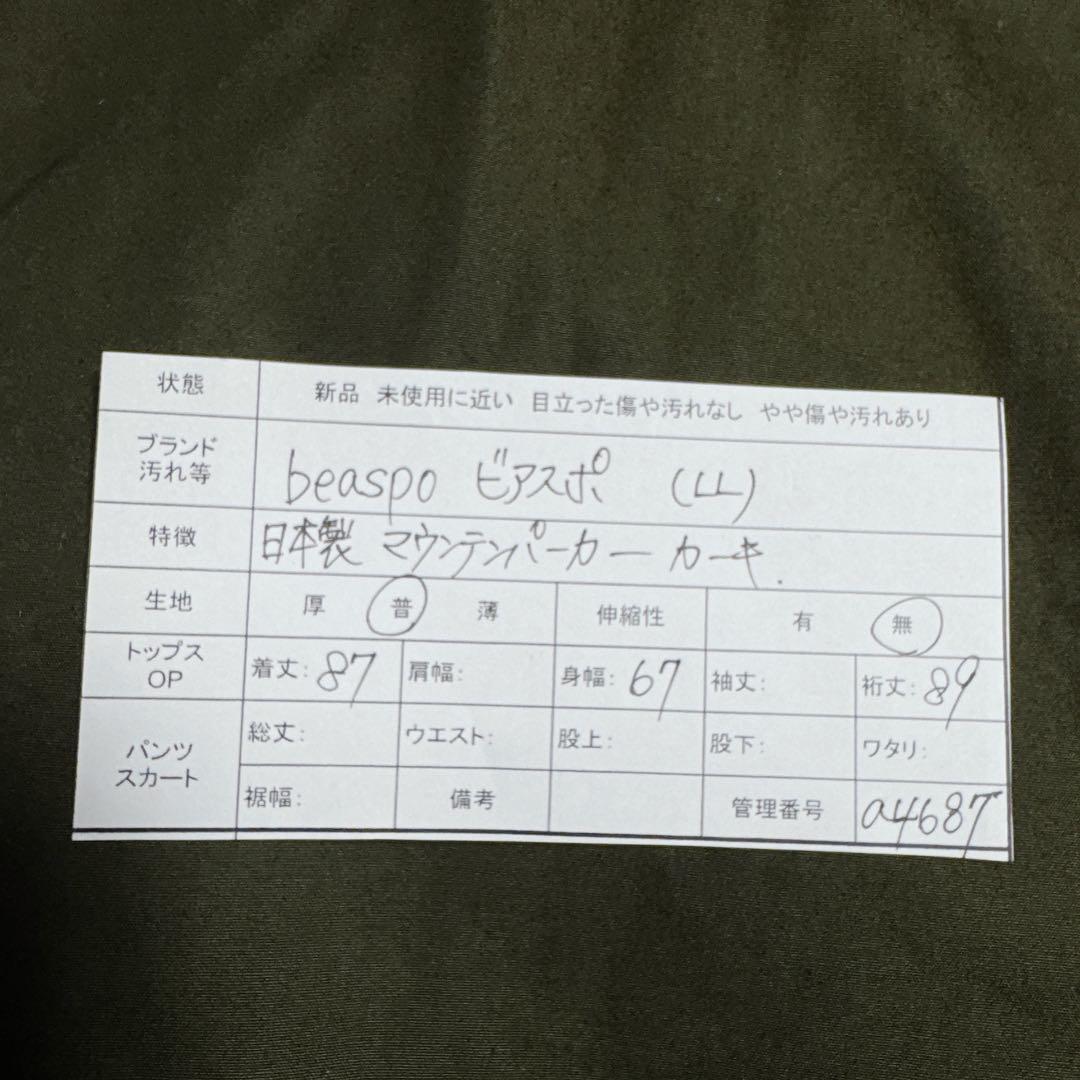 状態 新品 未使用に近い 目立った傷や汚れなし やや傷や汚れあり
ブランド
汚れ等 beaspo ビアスポ (LL)
特徴 日本製 マウンテンパーカー カーキ.
生地 厚 普 薄 伸縮性 有 無
トップス
OP 着丈: 87 肩幅: 身幅: 67 袖丈: 裄丈: 89
パンツ
スカート 総丈: ウエスト: 股上: 股下: ワタリ:
裾幅: 備考 管理番号 a4687